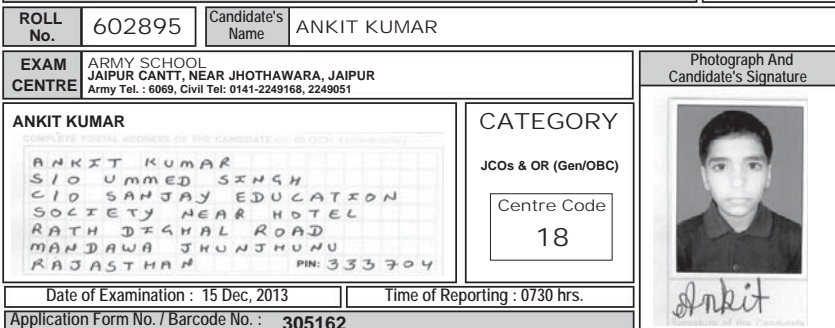 ROLL No. 602895 Candidate's Name ANKIT KUMAR
EXAM CENTRE
ARMY SCHOOL
JAIPUR CANTT, NEAR JHOTHAWARA, JAIPUR
Army Tel. : 6069, Civil Tel: 0141-2249168, 2249051
Photograph And
Candidate's Signature
ANKIT KUMAR
COMPLETE POSTAL ADDRESS OF THE CANDIDATE
ANKIT KUMAR
S/O UMMED SINGH
C/O SANJAY EDUCATION
SOCIETY NEAR HOTEL
RATH DIGHAL ROAD
MANDAWA JHUNJHUNU
RAJASTHAN PIN: 333704
CATEGORY
JCOs & OR (Gen/OBC)
Centre Code
18
Ankit
Signature of the Candidate
Date of Examination : 15 Dec, 2013 Time of Reporting : 0730 hrs.
Application Form No. / Barcode No. : 305162